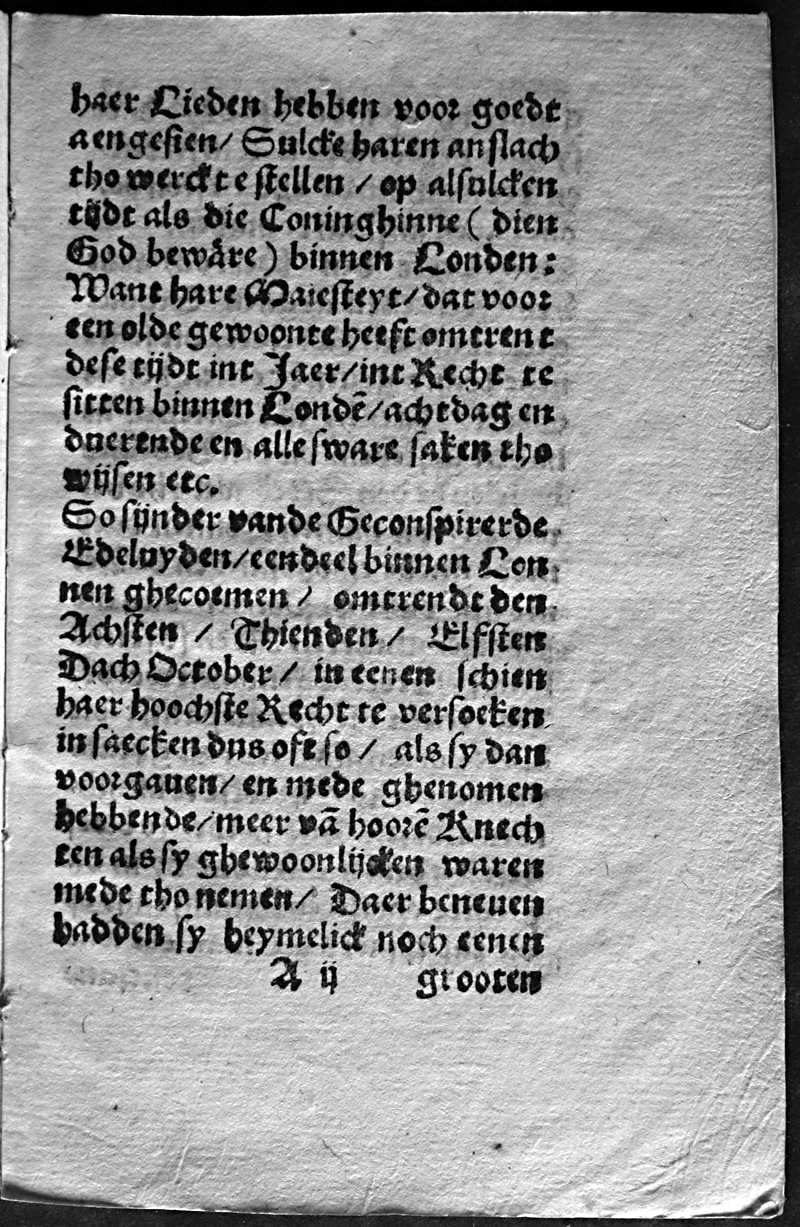 haer Lieden hebben voor goedt
aengesien/ Sulcke haren anslach
tho werck te stellen / op alsulcken
tijdt als die Coninghinne ( dien
God beware ) binnen Londen:
Want hare Maiesteyt/ dat voor
een olde gewoonte heeft omtrent
dese tijdt int Jaer/int Recht te
sitten binnen Londē/achtdag en
duerende en alle sware saken tho
wijsen etc.
So sijnder vande Geconspirerde
Edeluyden/eendeel binnen Lon
nen ghecoemen / omtrendt den
Achsten / Thienden / Elfsten
Dach October / in eenen schien
haer hoochste Recht te versoeken
in saecken dus oft so / als sy dan
voorgauen/ en mede ghenomen
hebbende/meer vā hoorē Knech
ten als sy ghewoonlijcken waren
mede tho nemen/ Daer beneuen
hadden sy heymelick noch eenen
A ij grooten